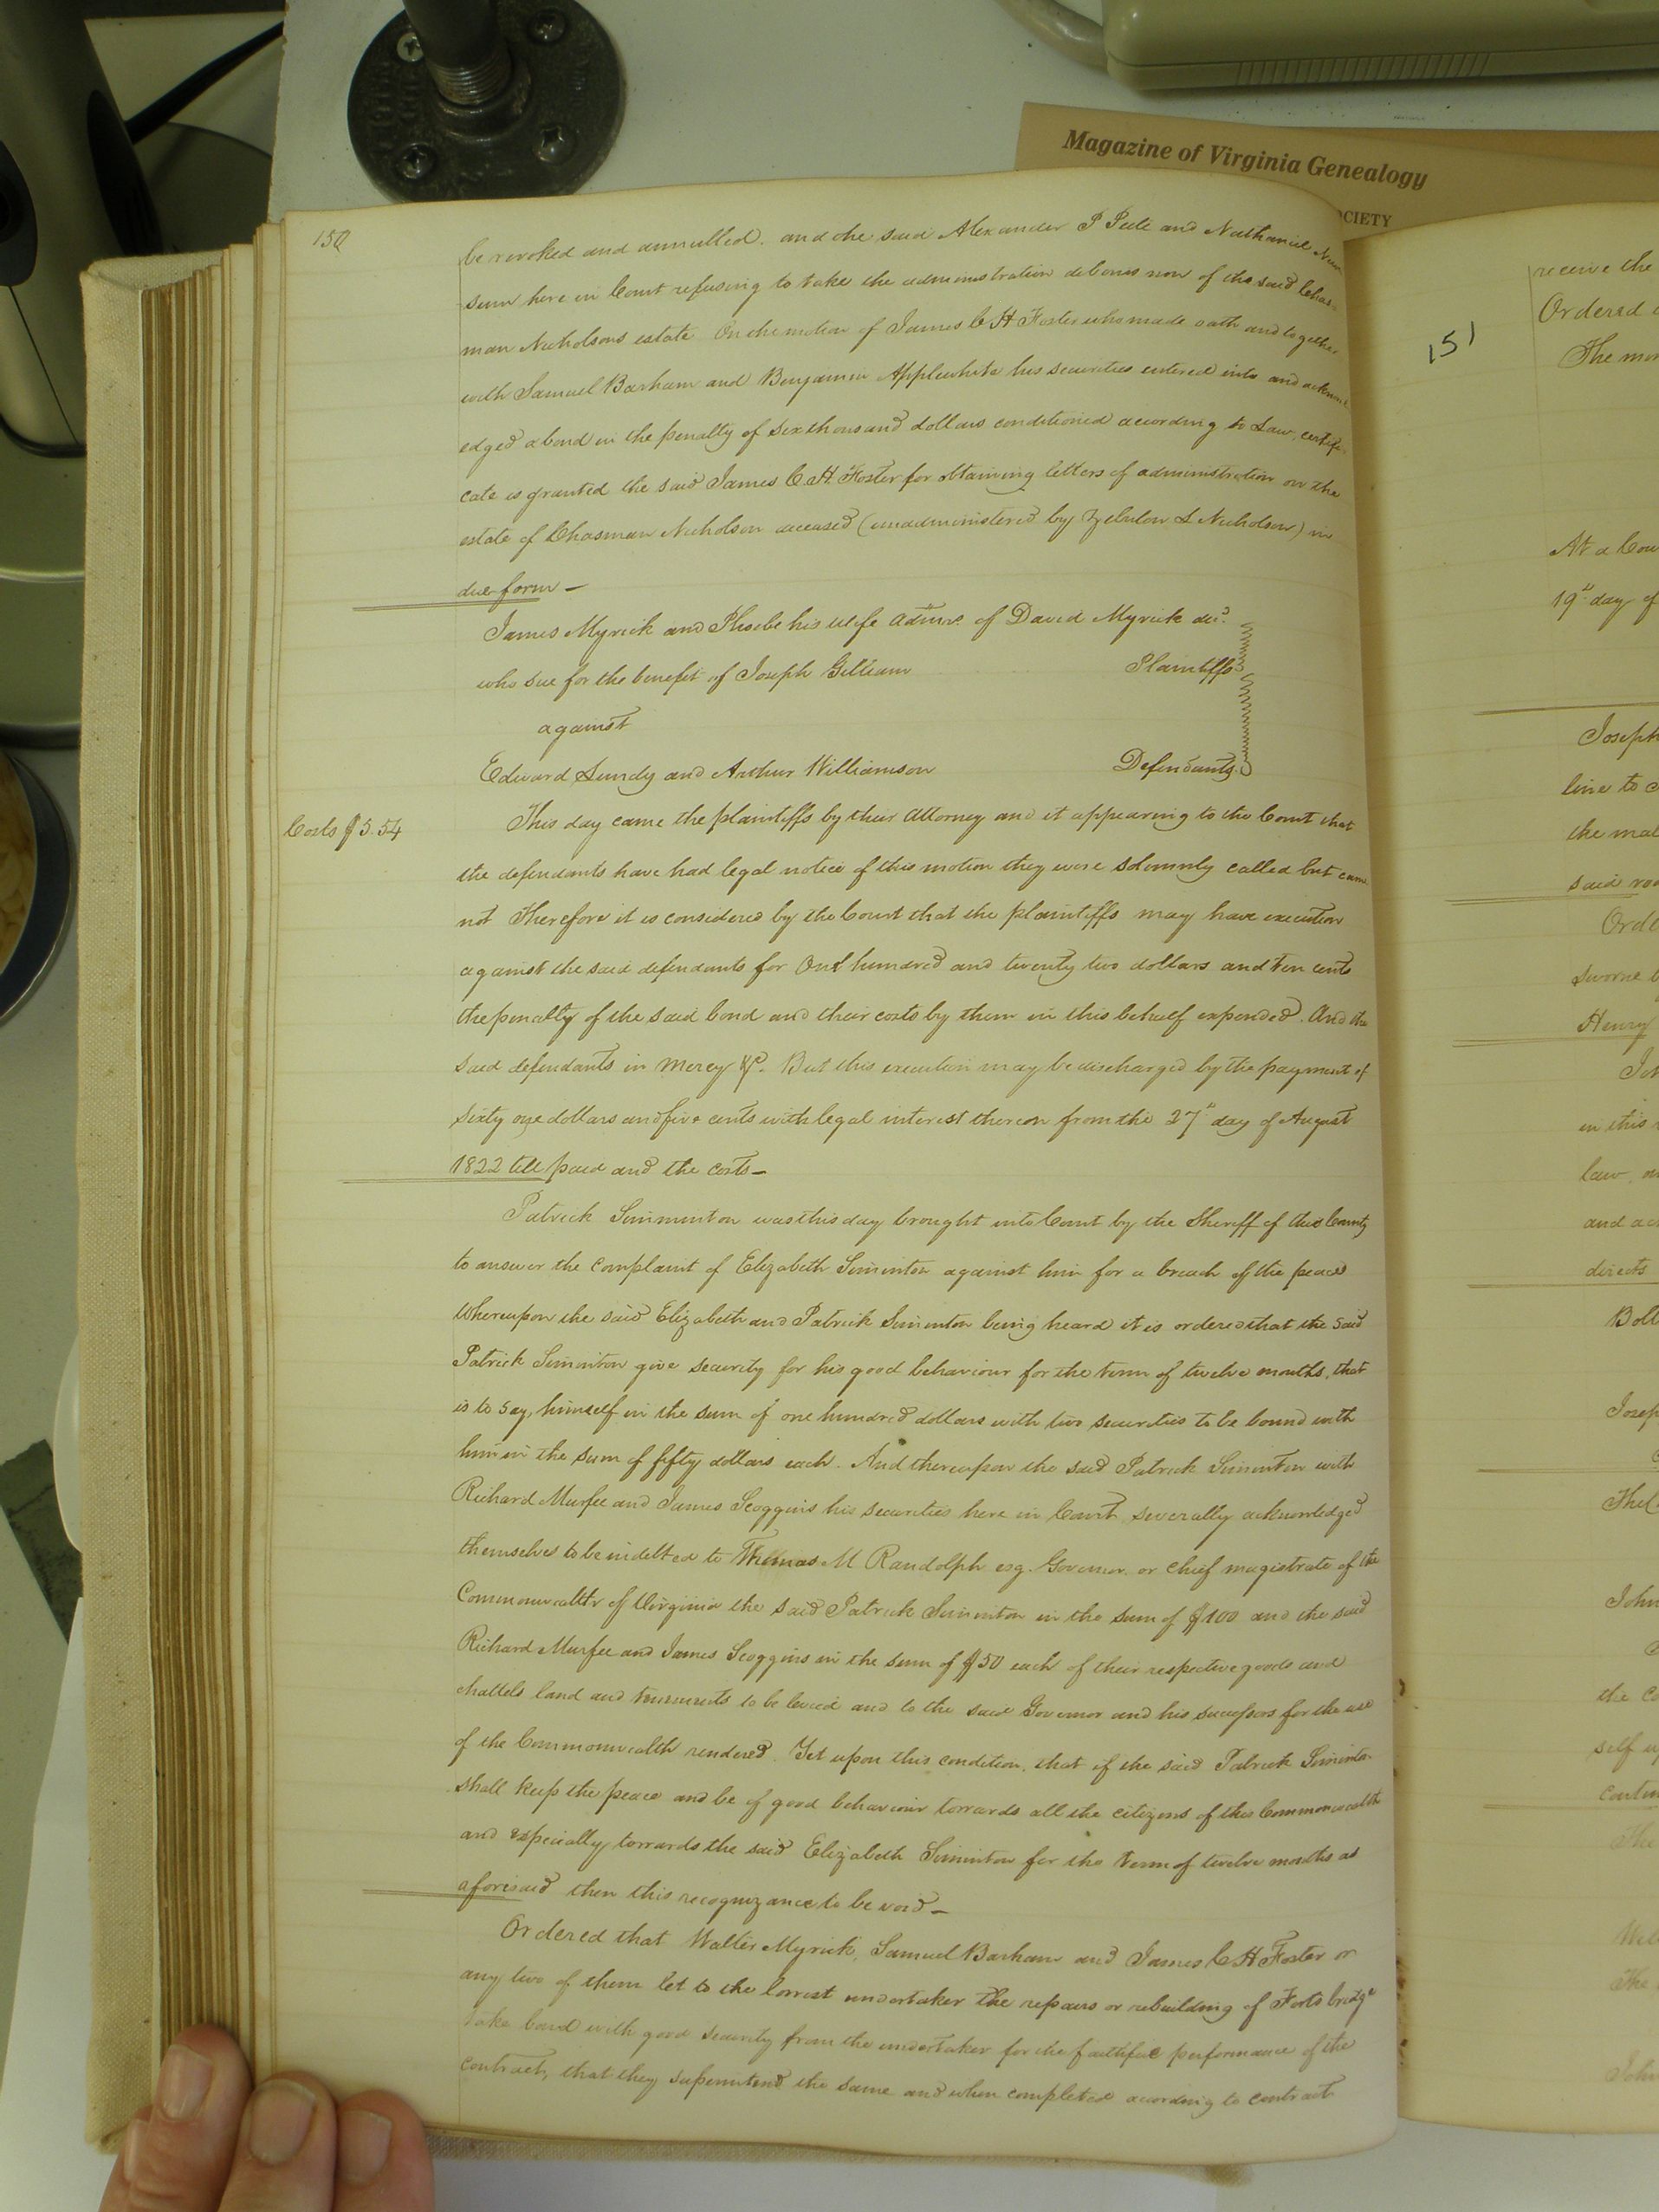 Magazine of Virginia Genealogy
OCIETY
150
be revoked and annulled. and the said Alexander P Peete and Nathaniel New
-sum here in Court refusing to take the administration debonis non of the said Chas-
man Nicholsons estate On the motion of James C H Foster who made oath and together
with Samuel Barham and Benjamin Applewhite his securities entered into and acknowl
edged a bond in the penalty of six thousand dollars conditioned according to Law, certifi-
cate is granted the said James C. H. Foster for obtaining letters of administration on the
estate of Chasman Nicholson deceased (unadministered by Zebulon L Nicholson) in
due form —
James Myrick and Phoebe his wife admrs. of David Myrick decd.
who sue for the benefit of Joseph Gilliam Plaintiffs
against
Edward Lundy and Arthur Williamson Defendants
Costs $5.54
This day came the plaintiffs by their attorney and it appearing to the Court that
the defendants have had legal notice of this motion they were solemnly called but came
not Therefore it is considered by the Court that the plaintiffs may have execution
against the said defendants for One hundred and twenty two dollars and ten cents
the penalty of the said bond and their costs by them in this behalf expended. And the
said defendants in mercy &c. But this execution may be discharged by the payment of
sixty one dollars and five cents with legal interest thereon from the 27th day of August
1822 till paid and the costs —
Patrick Simminton was this day brought into Court by the Sheriff of this County
to answer the complaint of Elizabeth Siminton against him for a breach of the peace
Whereupon the said Elizabeth and Patrick Siminton being heard it is ordered that the said
Patrick Siminton give security for his good behaviour for the term of twelve months, that
is to say, himself in the sum of one hundred dollars with two securities to be bound with
him in the sum of fifty dollars each. And thereupon the said Patrick Siminton with
Richard Murfee and James Scoggins his securities here in Court severally acknowledged
themselves to be indebted to Thomas M Randolph esq. Governor or chief magistrate of the
Commonwealth of Virginia the said Patrick Siminton in the sum of $100 and the said
Richard Murfee and James Scoggins in the sum of $50 each of their respective goods and
chattels land and tenements to be levied and to the said Governor and his successors for the use
of the Commonwealth rendered. Yet upon this condition, that if the said Patrick Siminton
shall keep the peace and be of good behaviour towards all the citizens of this Commonwealth
and especially towards the said Elizabeth Siminton for the term of twelve months as
aforesaid then this recognizance to be void —
Ordered that Walter Myrick, Samuel Barham and James C H Foster or
any two of them let to the lowest undertaker the repairs or rebuilding of Forts bridge
take bond with good security from the undertaker for the faithful performance of the
contract, that they superintend the same and when completed according to contract
151
receive the
Ordered
The
At a Cou
19th day of
Joseph
line to
the
said
Orde
sworne
Henry
in this
law,
and
directs
Boll
Josep
The
John
the Co
self
contin
The
The
John